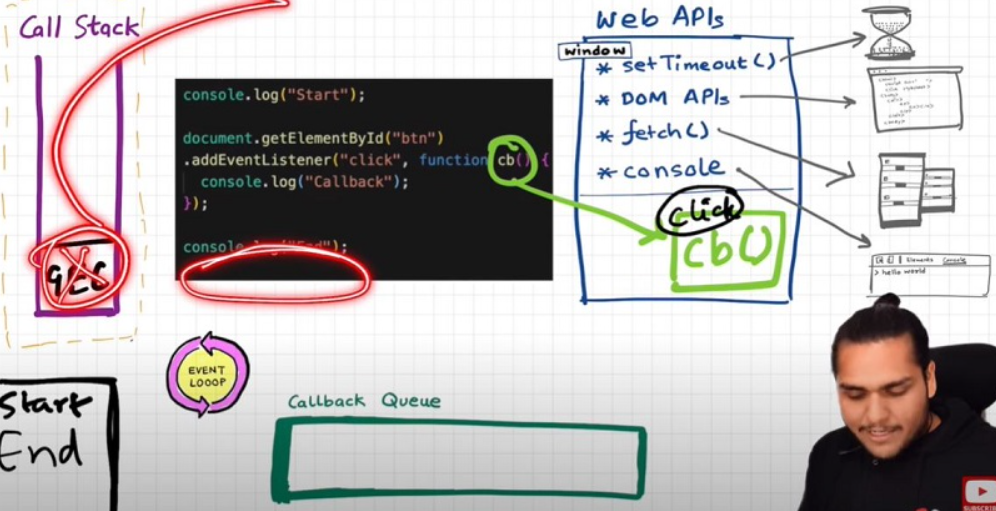 Call Stack
GEC
console.log("Start");
document.getElementById("btn")
.addEventListener("click", function cb() {
console.log("Callback");
});
console.log("End");
Web APIs
window
* setTimeout()
* DOM APIs
* fetch()
* console
click
cb()
Elements Console
> hello world
Start
End
EVENT
LOOOP
Callback Queue
SUBSCRIBE